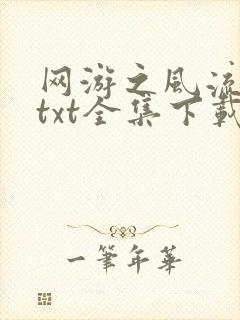 网游之风流
txt全集下载
一笔年华